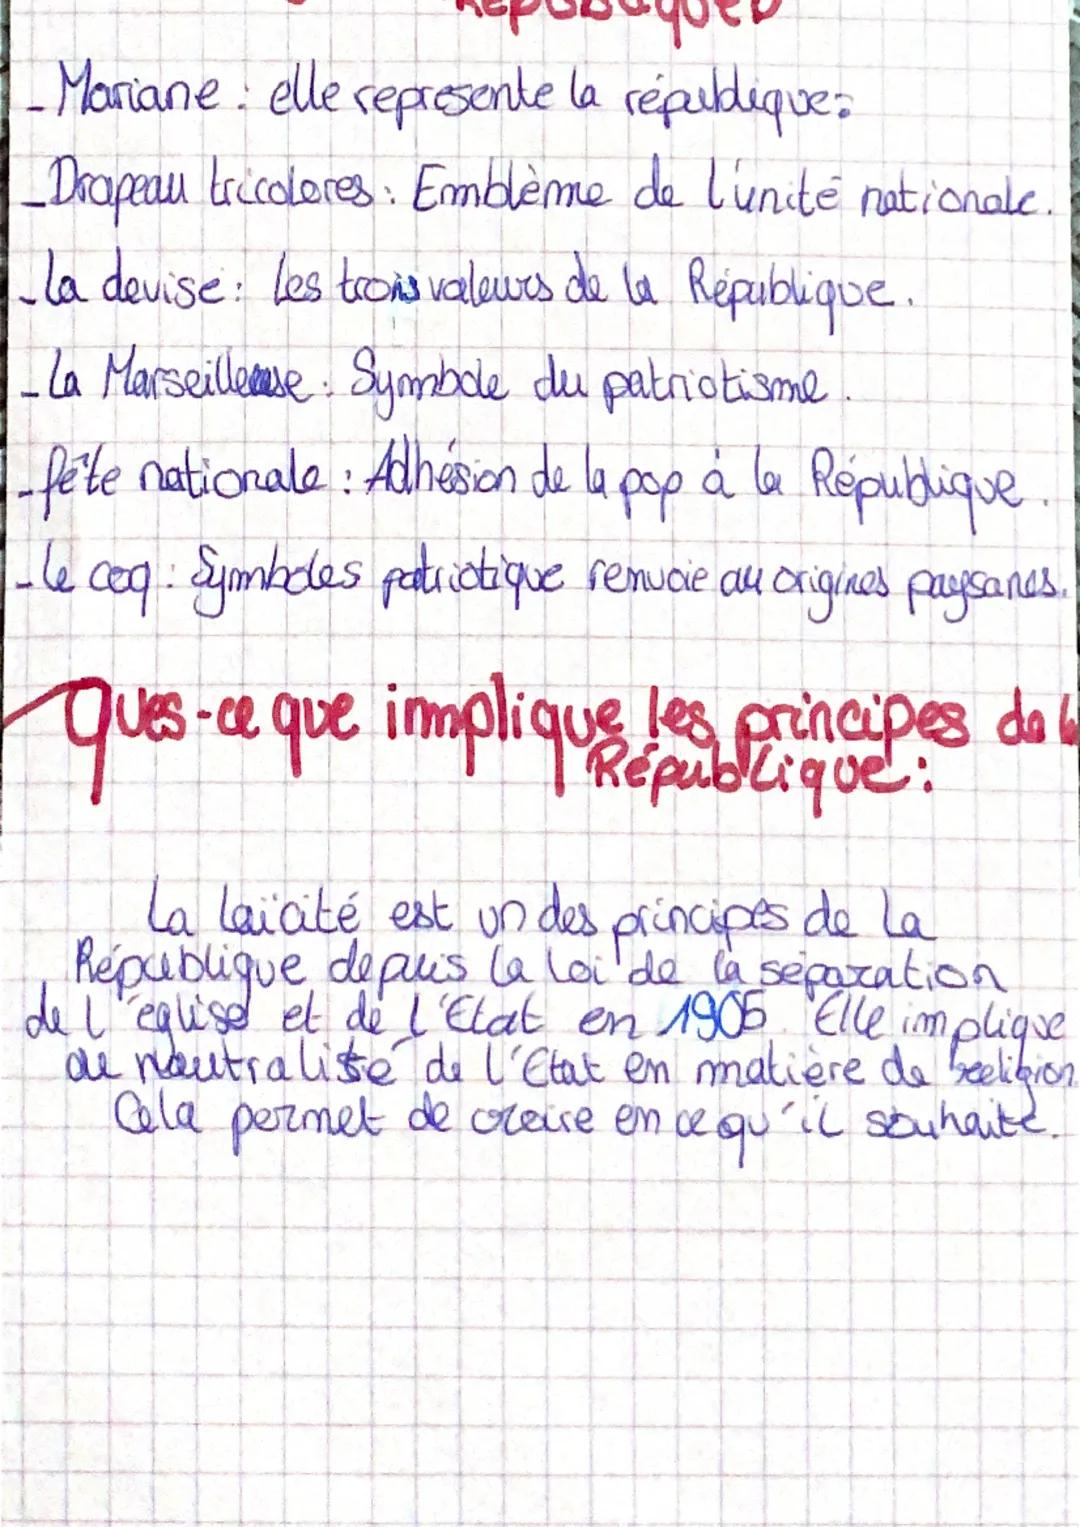 Républiques
- Mariane : elle represente la république :
- Drapeau tricolores : Emblème de l'unité nationale.
- La devise : Les trois valeurs de la République.
- La Marseillense : Symbole du patriotisme.
- fête nationale : Adhésion de la pop à la République.
- le coq : Symboles patriotique renvoie au origines paysanes.
Ques-ce que implique les principes de la
République :
La laïcité est un des principes de la
République depuis la loi de la séparation
de l'église et de l'Etat en 1905. Elle implique
de neutralité de l'Etat en matière de religion
Cela permet de croire en ce qu'il souhaite.